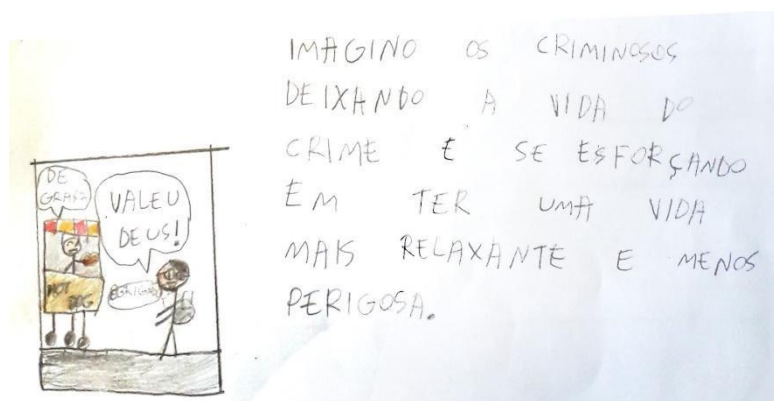 DE
GRAÇA
VALEU
DEUS!
HOT
DOG
IMAGINO OS CRIMINOSOS
DEIXANDO A VIDA DO
CRIME E SE ESFORÇANDO
EM TER UMA VIDA
MAIS RELAXANTE E MENOS
PERIGOSA.